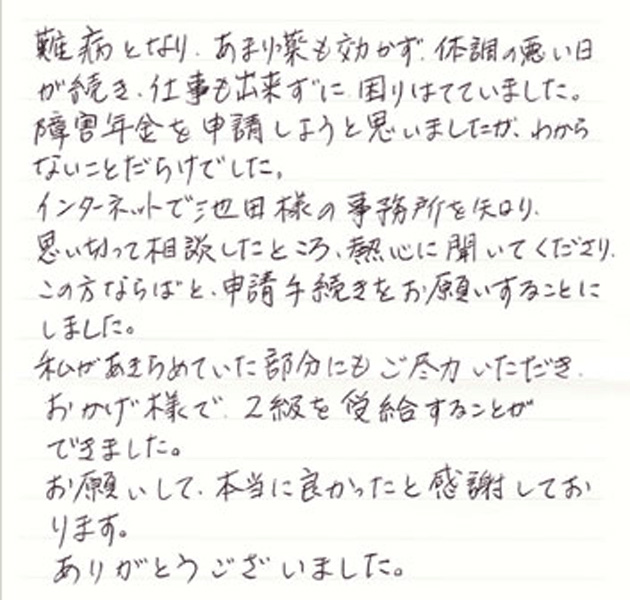 難病となり、あまり薬も効かず、体調の悪い日
が続き、仕事も出来ずに、困りはてていました。
障害年金を申請しようと思いましたが、わから
ないことだらけでした。
インターネットで池田様の事務所を知り、
思い切って相談したところ、熱心に聞いてくださり、
この方ならばと、申請手続きをお願いすることに
しました。
私があきらめていた部分にもご尽力いただき、
おかげ様で、2級を受給することが
できました。
お願いして、本当に良かったと感謝してお
ります。
ありがとうございました。